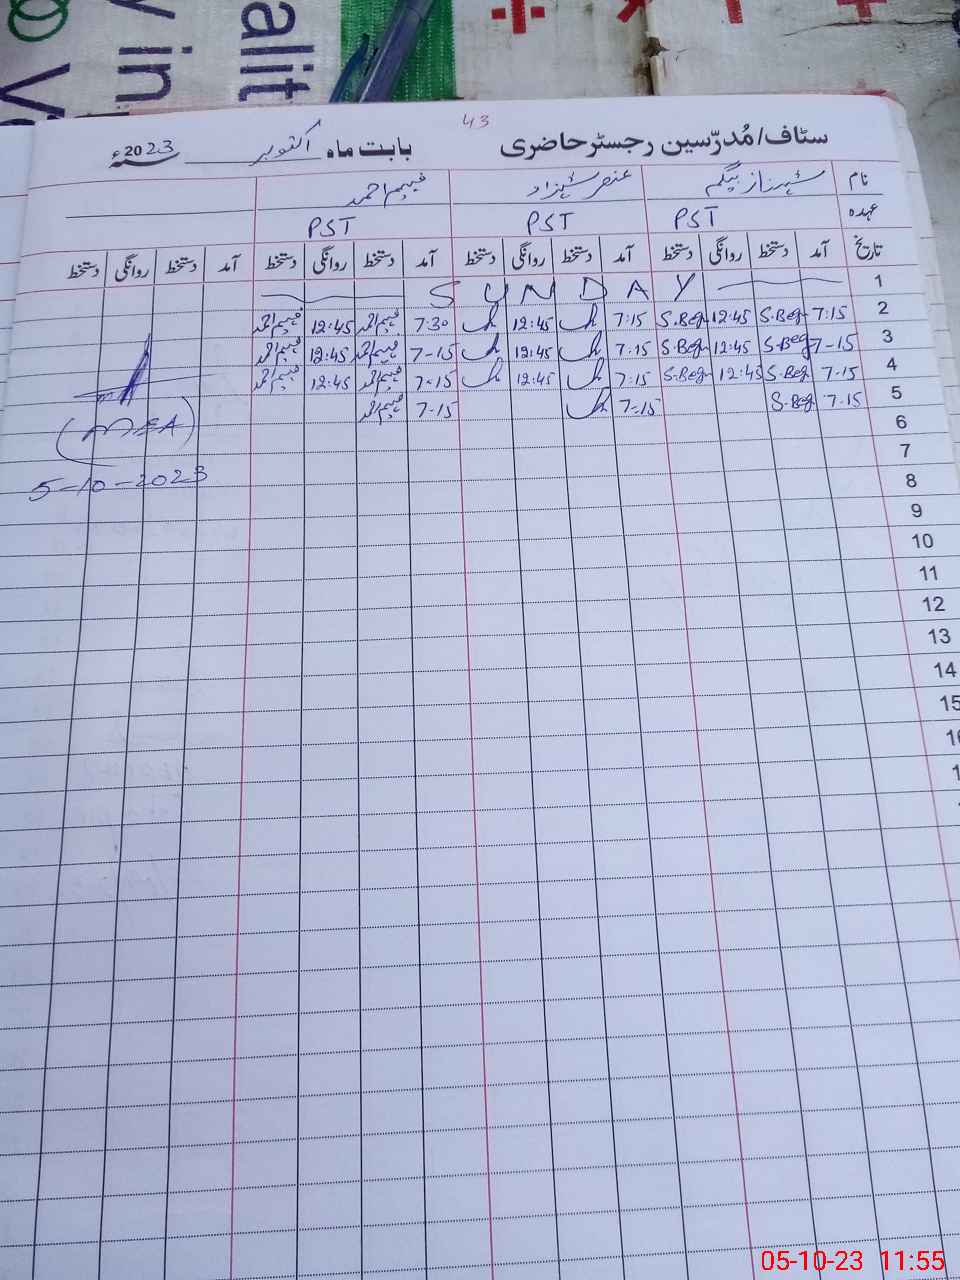 alit
y in
43
سٹاف/مُدرّسین رجسٹر حاضری بابت ماہ اکتوبر 2023ء
نام شہناز بیگم عنصر شہزاد فہیم احمد
عہدہ PST PST PST
تاریخ آمد دستخط روانگی دستخط آمد دستخط روانگی دستخط آمد دستخط روانگی دستخط آمد دستخط روانگی دستخط
1 SUNDAY
2 7:15 S.Beg 12:45 S.Beg 7:15 12:45 7:30 فہیم احمد 12:45 فہیم احمد
3 7-15 S.Beg 12:45 S.Beg 7:15 12:45 7-15 فہیم احمد 12:45 فہیم احمد
4 7-15 S.Beg 12:45 S.Beg 7:15 12:45 7-15 فہیم احمد 12:45 فہیم احمد
5 7-15 S.Beg 7-15 7-15 فہیم احمد
(MEA)
6
7
5-10-2023
8
9
10
11
12
13
14
15
05-10-23 11:55